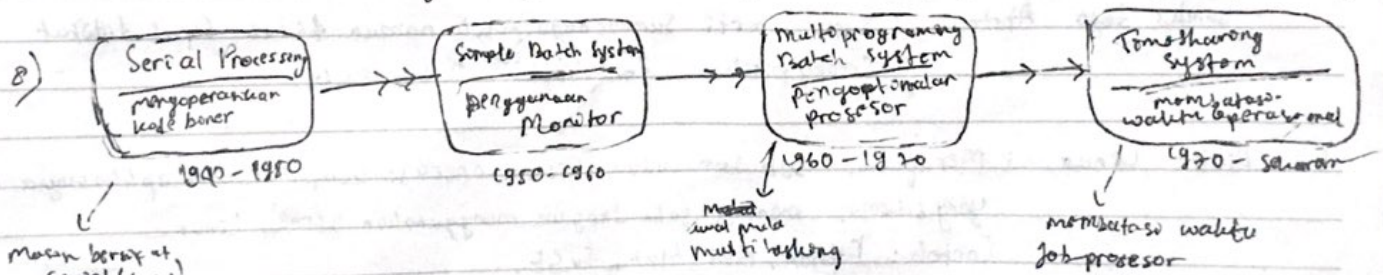 8)
Serial Processing
mengoperasikan
kode boner
1940-1950
Simple Batch System
penggunaan
Monitor
1950-1960
Multoprograming
Batch System
Pengoptimalan
prosesor
1960-1970
Timesharing
System
membatasi
waktu operasional
1970 -
awal mula
multitasking
membatasi waktu
Job prosesor